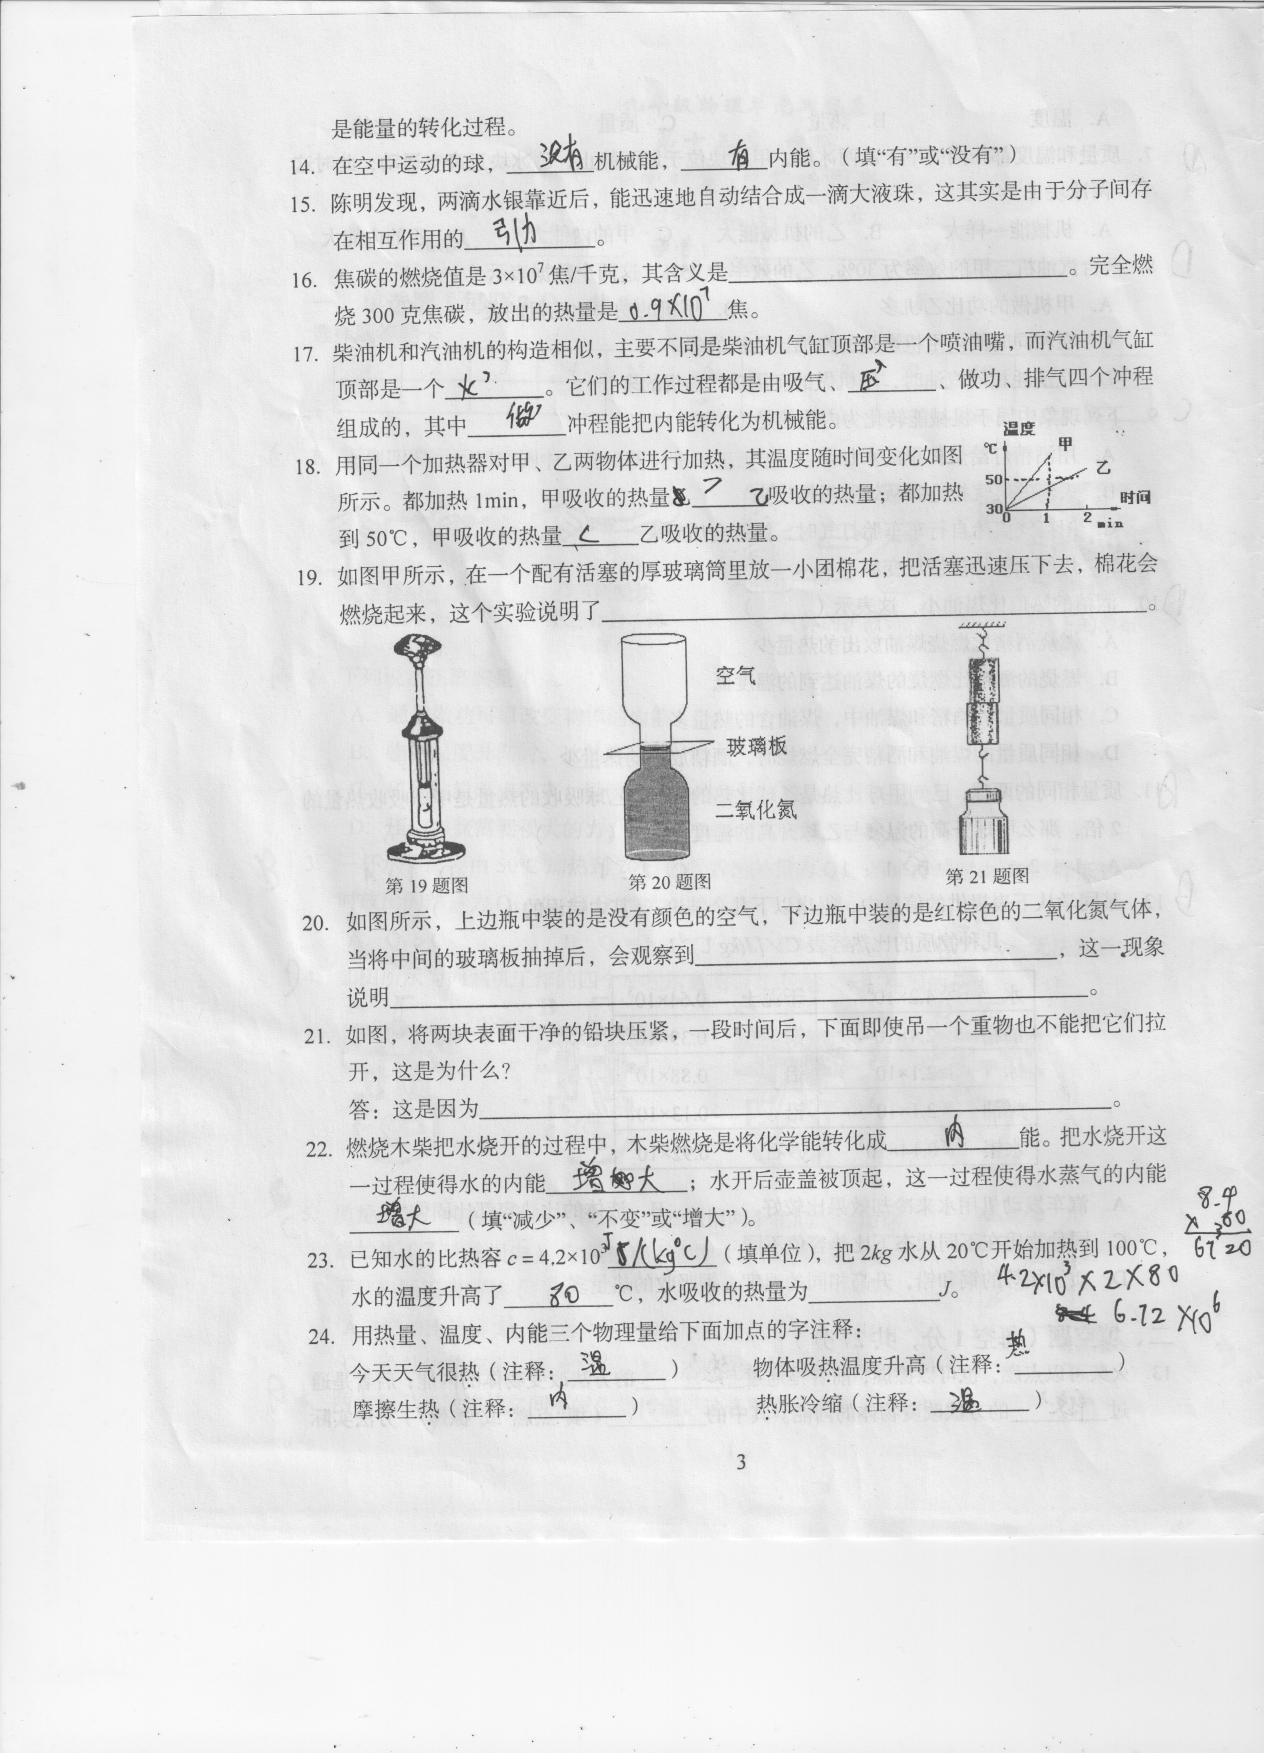 是能量的转化过程。
14. 在空中运动的球，没有机械能，有内能。（填“有”或“没有”）
15. 陈明发现，两滴水银靠近后，能迅速地自动结合成一滴大液珠，这其实是由于分子间存
在相互作用的引力。
16. 焦碳的燃烧值是 3×10⁷焦/千克，其含义是____________。完全燃
烧 300 克焦碳，放出的热量是0.9×10⁷焦。
17. 柴油机和汽油机的构造相似，主要不同是柴油机气缸顶部是一个喷油嘴，而汽油机气缸
顶部是一个火。它们的工作过程都是由吸气、压、做功、排气四个冲程
组成的，其中做冲程能把内能转化为机械能。
18. 用同一个加热器对甲、乙两物体进行加热，其温度随时间变化如图
所示。都加热 1min，甲吸收的热量 > 乙吸收的热量；都加热
到 50℃，甲吸收的热量 < 乙吸收的热量。
温度
℃
甲
乙
50
30
0 1 2
时间
min
19. 如图甲所示，在一个配有活塞的厚玻璃筒里放一小团棉花，把活塞迅速压下去，棉花会
燃烧起来，这个实验说明了____________。
空气
玻璃板
二氧化氮
第 19 题图 第 20 题图 第 21 题图
20. 如图所示，上边瓶中装的是没有颜色的空气，下边瓶中装的是红棕色的二氧化氮气体，
当将中间的玻璃板抽掉后，会观察到____________，这一现象
说明____________。
21. 如图，将两块表面干净的铅块压紧，一段时间后，下面即使吊一个重物也不能把它们拉
开，这是为什么？
答：这是因为____________。
22. 燃烧木柴把水烧开的过程中，木柴燃烧是将化学能转化成内能。把水烧开这
一过程使得水的内能增大；水开后壶盖被顶起，这一过程使得水蒸气的内能
增大（填“减少”、“不变”或“增大”）。
8.4
×80
6720
23. 已知水的比热容 c = 4.2×10³J/(kg℃)（填单位），把 2kg 水从 20℃开始加热到 100℃，
4.2×10³×2×80
水的温度升高了80℃，水吸收的热量为________J。
6.72×10⁶
24. 用热量、温度、内能三个物理量给下面加点的字注释：
今天天气很热（注释：温） 物体吸热温度升高（注释：热）
摩擦生热（注释：内） 热胀冷缩（注释：温）
3